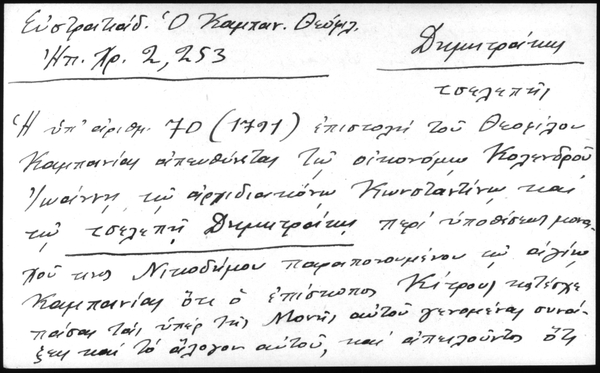 Εὐστρατιάδ. Ὁ Καμπαν. Θεόφιλ.
Ἠπ. Χρ. 2, 253
Δημητράκης
τσελεπῆς
Ἡ ὑπ' ἀριθμ. 70 (1791) ἐπιστολή τοῦ Θεοφίλου
Καμπανίας ἀπευθύνεται τῷ οἰκονόμῳ Κολινδροῦ
Ἰωάννῃ τῷ ἀρχιδιακόνῳ Κωνσταντίνῳ καί
τῷ τσελεπῆ Δημητράκη περί ὑποθέσεως μονα-
χοῦ τινος Νικοδήμου παραπονουμένου τῷ ἁγίῳ
Καμπανίας ὅτι ὁ ἐπίσκοπος Κίτρους κατέσχε
πάσας τάς ὑπέρ τῆς Μονῆς αὐτοῦ γενομένας συνά-
ξεις καί τό ἄλογον αὐτοῦ, καί ἀπειλοῦντος ὅτι